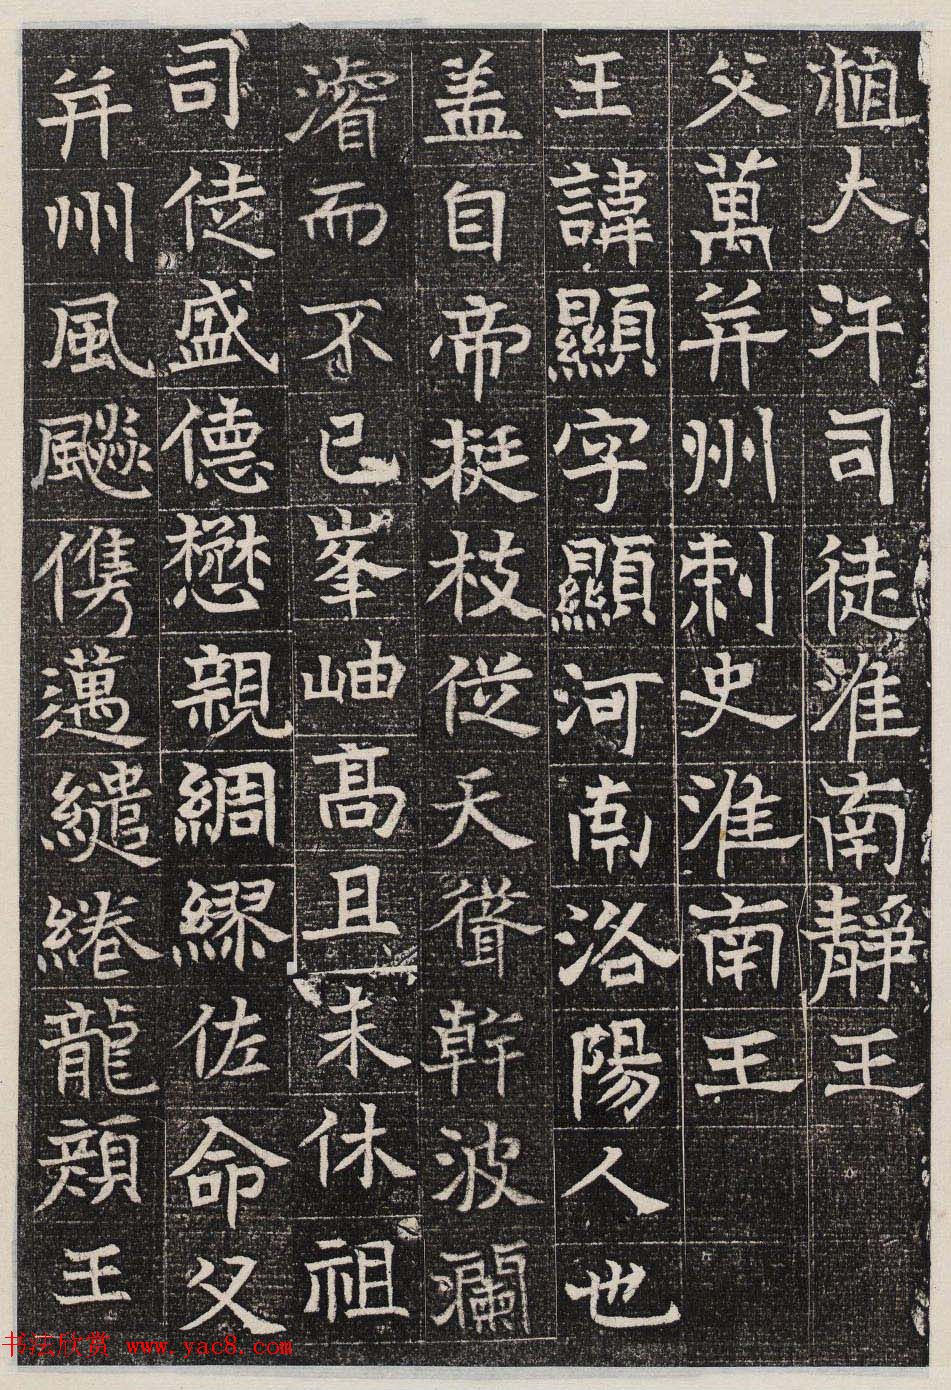 道大汗司徒淮南靜王
父萬并州刺史淮南王
王諱顯字顯河南洛陽人也
盖自帝挺枝從天聳幹波瀾
濬而不已峯岫高且未休祖
司徒盛德懋親綢繆佐命父
并州風飈儁邁繾綣龍顏王
书法欣赏 www.yac8.com